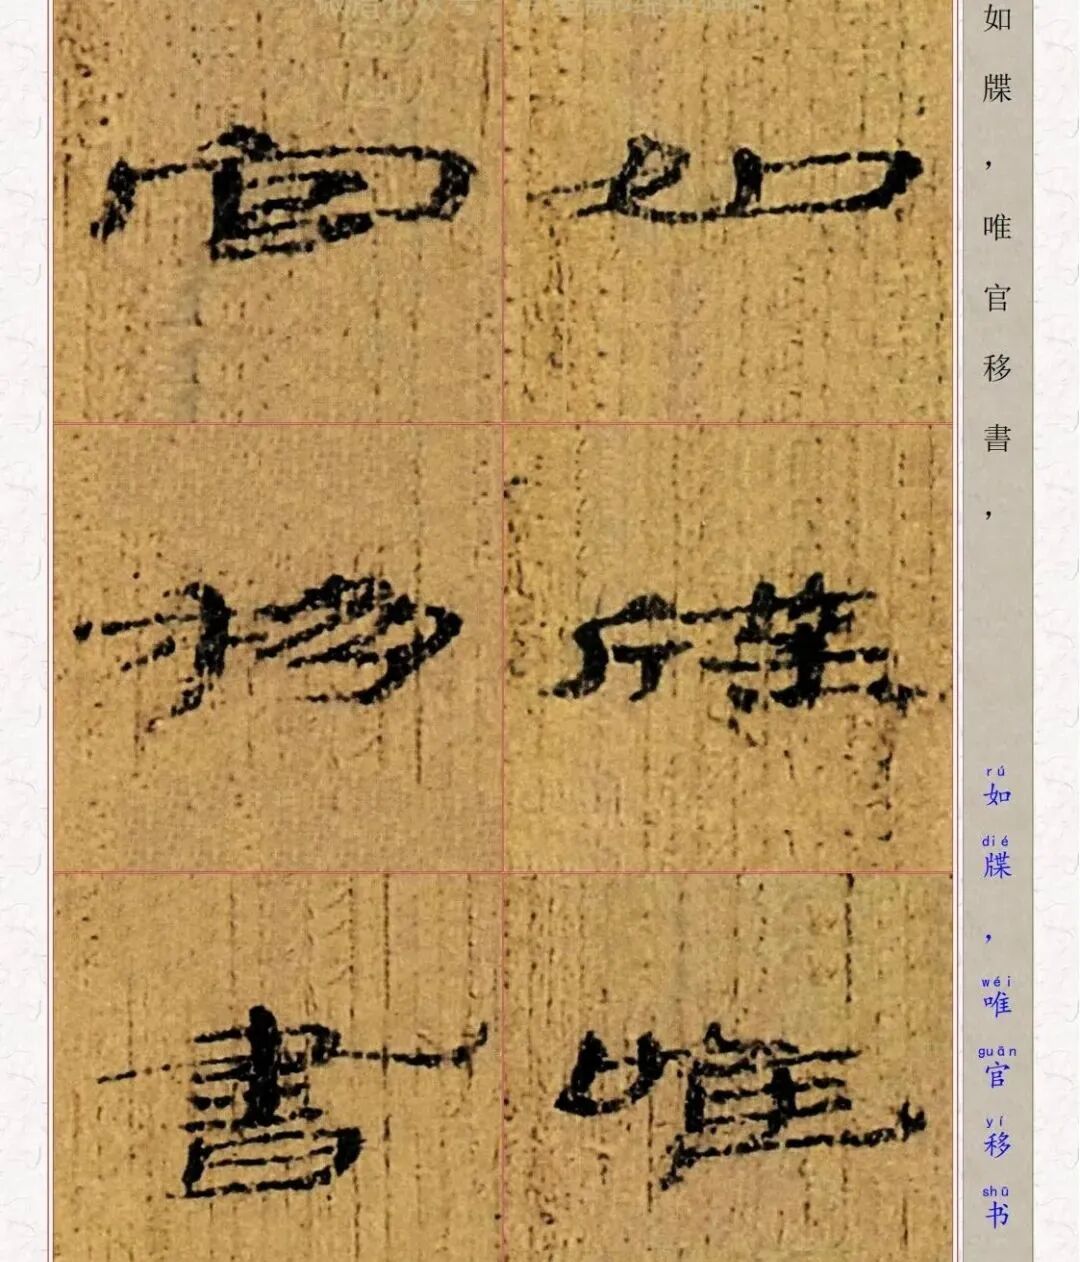 如
牒
唯
官
移
書
如牒，唯官移書，
rú dié wéi guān yí shū
如牒，唯官移书